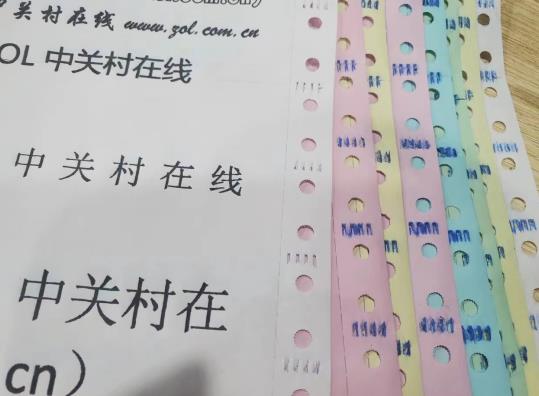 中关村在线 www.zol.com.cn
OL 中关村在线
中关村在线
中关村在
cn）